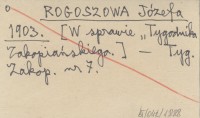 ROGOSZOWA Józefa
1903. [W sprawie „Tygodnika
Zakopiańskiego.] — Tyg.
Zakop. nr 7.